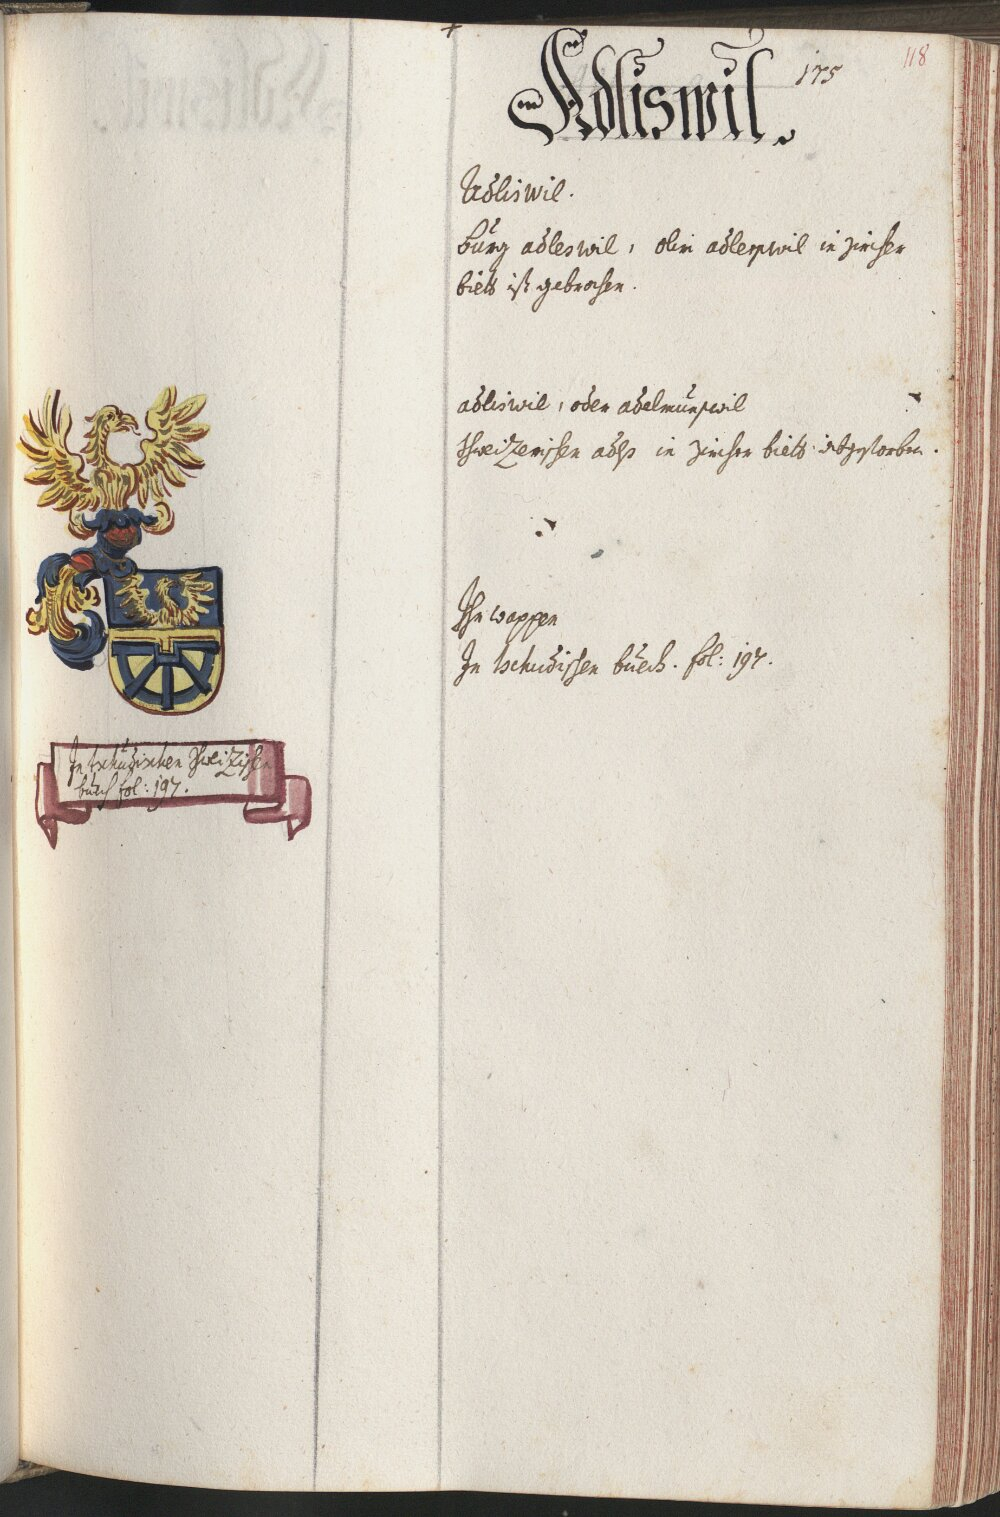 118
175
Adliswil.
Adliswil.
burg adleswil, olim adlerswil in zürcher
biett ist gebrochen.
adliswil, oder adelmurswil
schweitzerischer adel in zürcher biett abgestorben.
Ihr wappen
In tschudischen buech. fol: 197.
In tschudischen Schweitzischen
buech fol: 197.